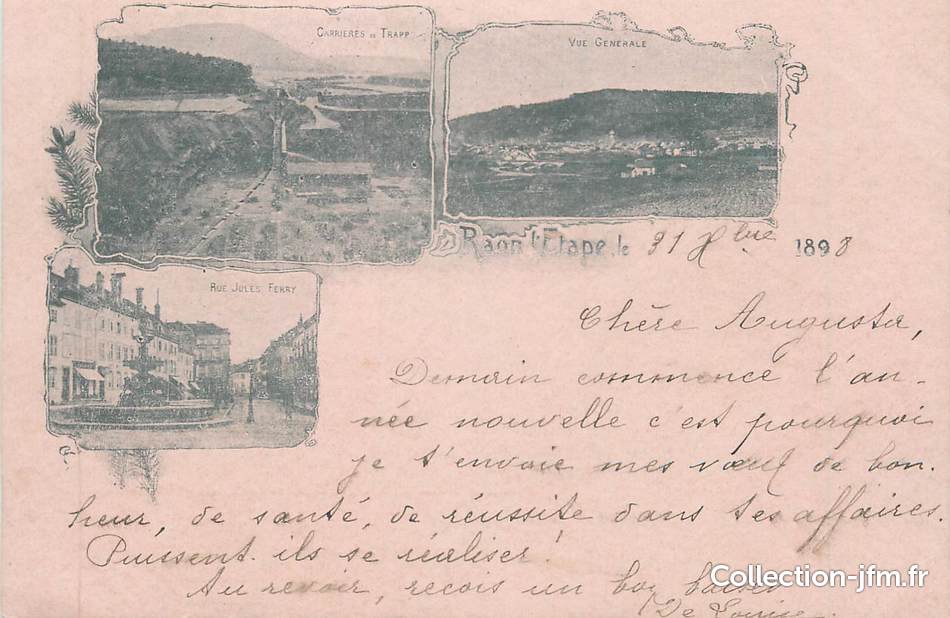 CARRIERES DE TRAPP
VUE GENERALE
Raon l'Etape, le 31 Xbre 1898
RUE JULES FERRY
Chère Augusta,
Demain commence l'an-
née nouvelle c'est pourquoi
je t'envoie mes vœux de bon
heur, de santé, de réussite dans tes affaires.
Puissent-ils se réaliser!
Au revoir, reçois un bon baiser
De Louise.
Collection-jfm.fr